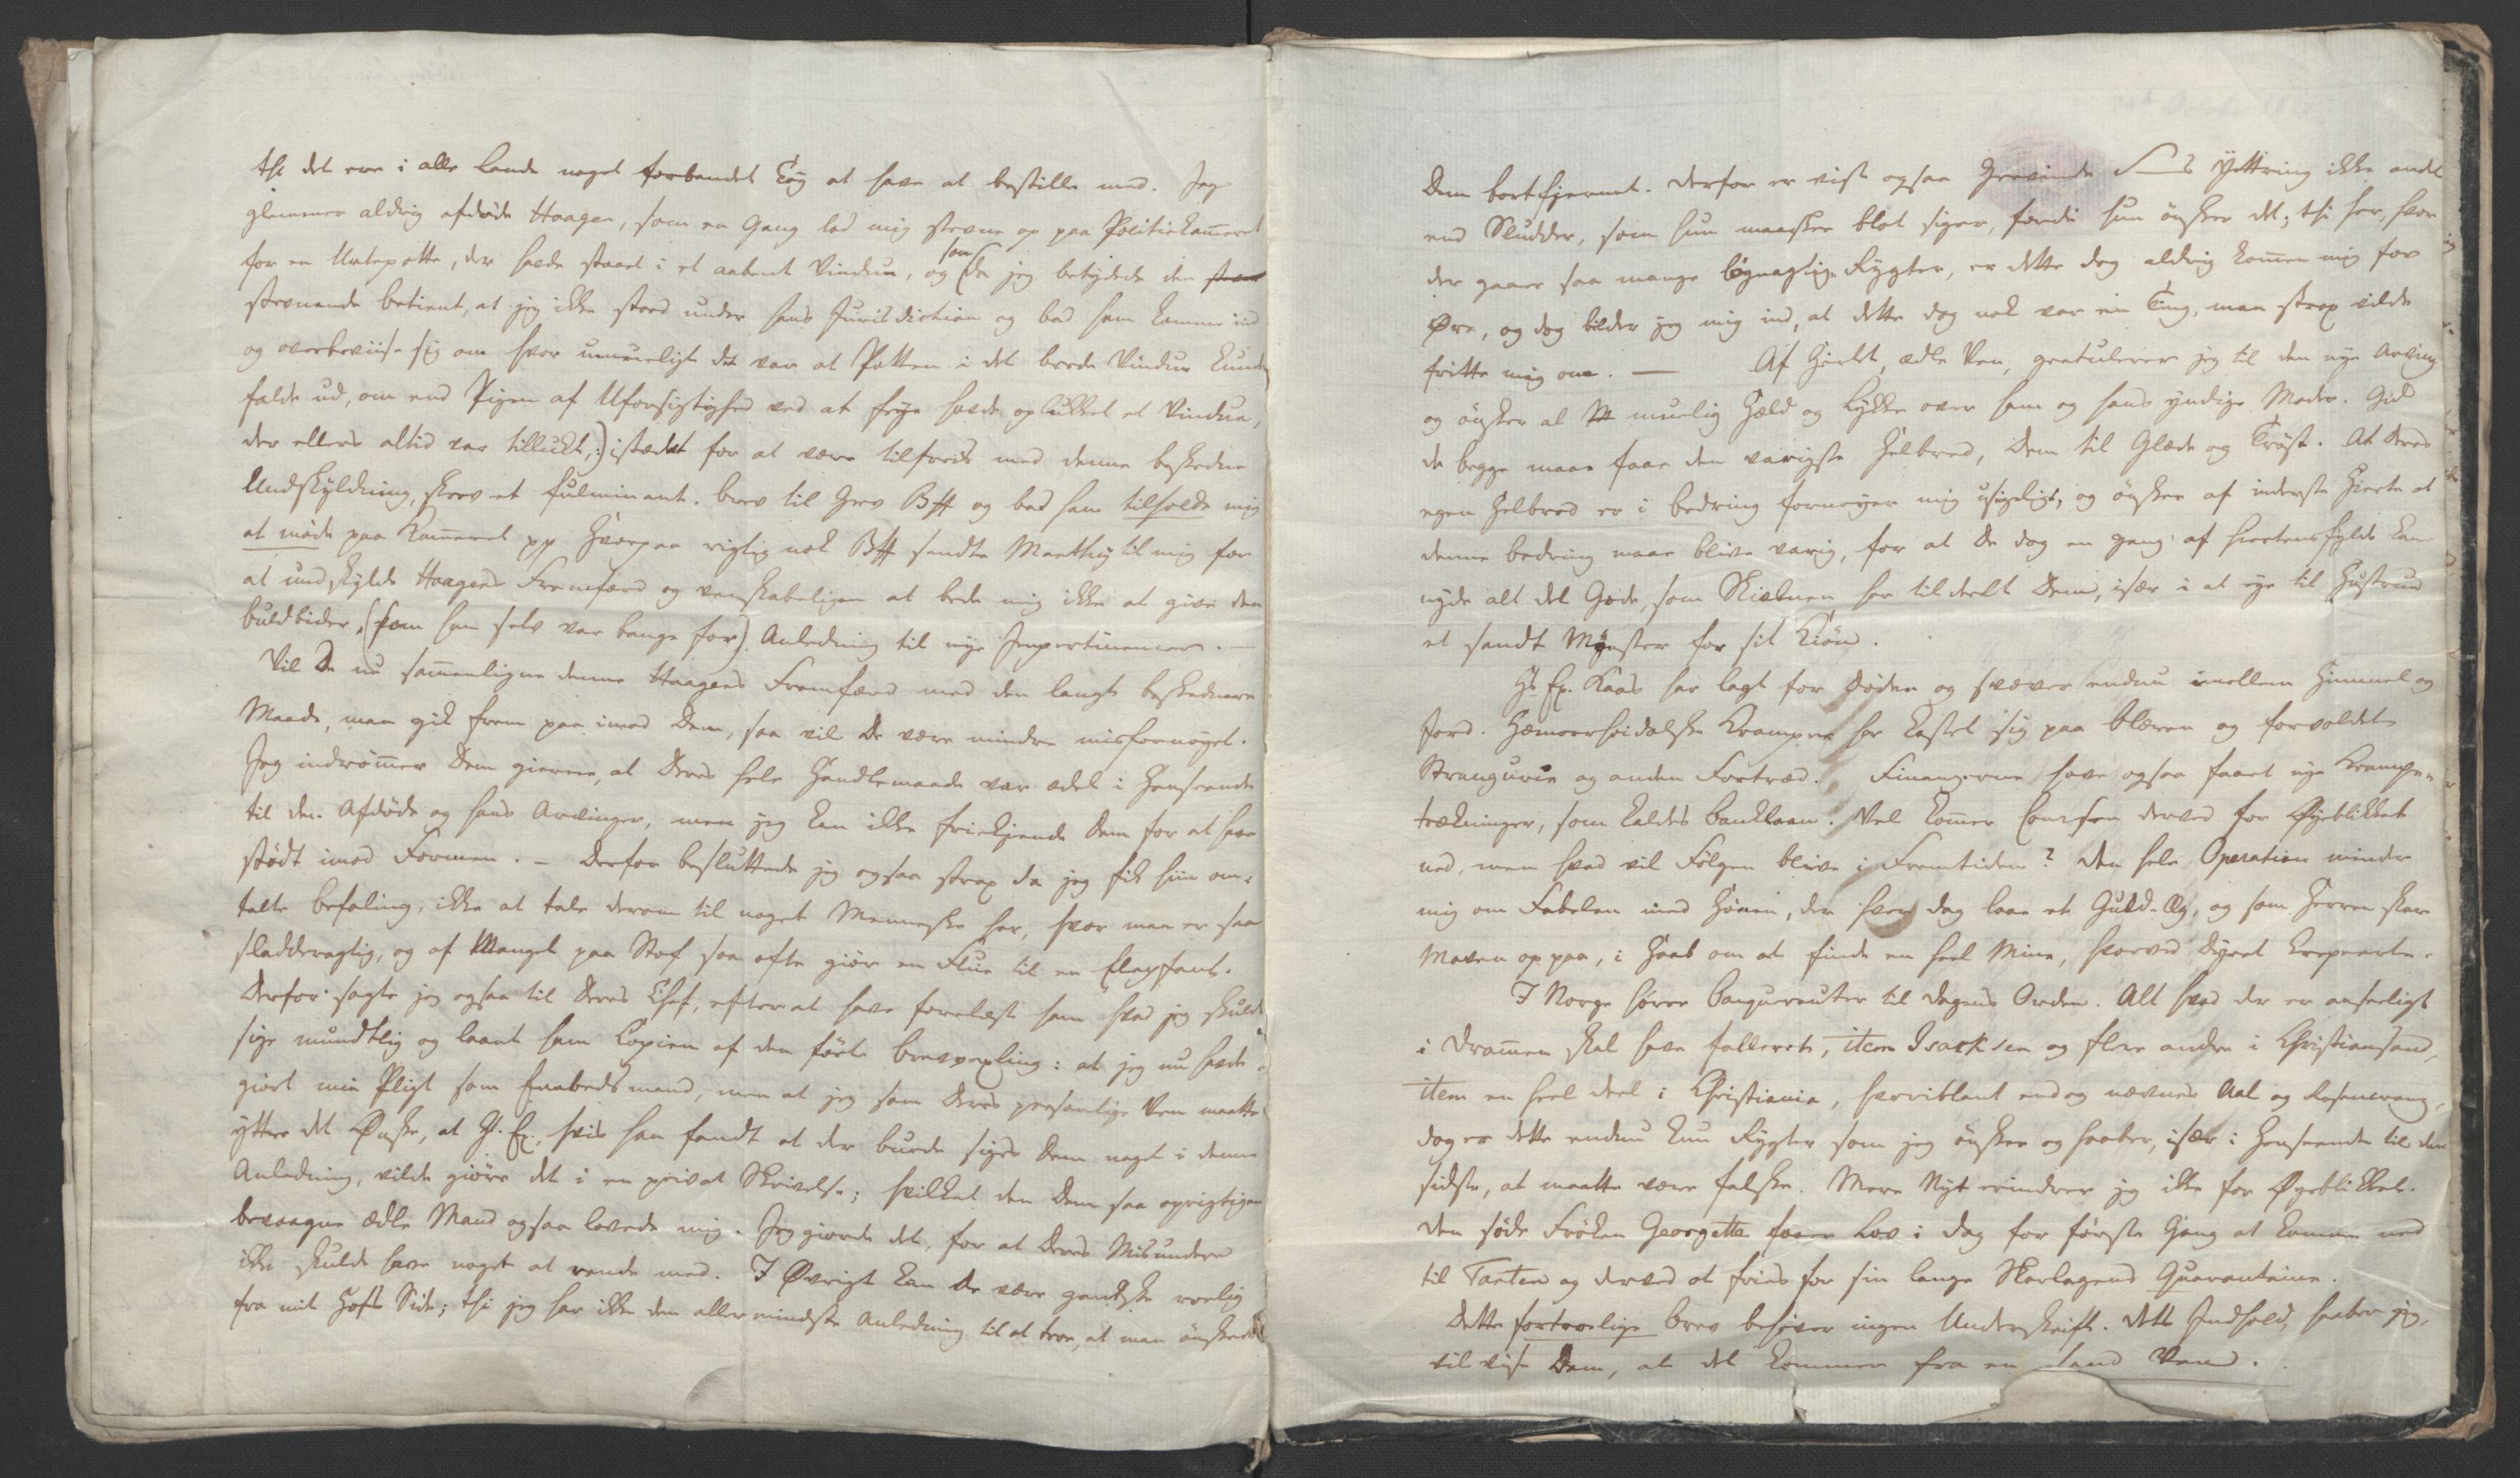 thi det er i alle Lande noget forbandet Tøy at have at bestille med. Jeg
glemmer aldrig afdøde Haagen, som en Gang lod mig stevne op paa Politiekameret
for en Urtepotte, der havde staaet i et aabent Vindue, og som (da jeg betydede den
stevnende betient, at jeg ikke stod under hans Jurisdiction og bad ham komme ind
og overbeviise sig om hvor umueligt det var at Potten i det brede Vindue kunde
falde ud, om end Pigen af Uforsigtighed ved at feye havde oplukket et Vindue,
der ellers altid var tillukt,) istædet for at være tilfreds med denne beskedne
Undskyldning, skrev et fulminant brev til Grev Bff og bad ham tilholde mig
at møde paa Kameret pp Hvorpaa rigtig nok Bff sendte Manthey til mig for
at undskylde Haagens Fremfærd og venskabeligen at bede mig ikke at give den
buldbider, (som han selv var bange for) Anledning til nye Impertinencer. —
Vil De nu sammenligne denne Haagens Fremfærd med den langt beskednere
Maade, man gik frem paa imod Dem, saa vil De være mindre misfornøyet.
Jeg indrømmer Dem gierne, at Deres hele Handlemaade var ædel i Henseende
til den Afdøde og hans Arvinger, men jeg kan ikke frikiende Dem for at have
stødt imod Formen. — Derfor besluttede jeg ogsaa strax da jeg fik hiin om-
talte befaling, ikke at tale derom til noget Menneske her, hvor man er saa
sladderagtig, og af Mangel paa Stof saa ofte giør en Flue til en Elephant.
Derfor sagte jeg ogsaa til Deres Chef, efter at have forelæst ham hvad jeg skulde
sige mundtlig og laant ham Copien af den førte brevvexling: at jeg nu havde
giort min Pligt som Embedsmand, men at jeg som Deres personlige Ven maatte
yttre det Ønske, at H. Ex., hvis han fandt at der burde siges Dem noget i denne
Anledning, vilde giøre det i en privat Skrivelse; hvilket den Dem saa oprigtigen
bevaagne ædle Mand ogsaa lovede mig. Jeg giorde det, for at Deres Misundere
ikke skulde have noget at rende med. I Øvrigt kan De være gandske roelig
fra mit Hofs Side; thi jeg har ikke den allermindste Anledning til at troe, at man ønskede
Dem bortfjernet. Derfor er vist ogsaa Grevinde S—s Yttring ikke andet
end Sludder, som hun maaskee blot siger, fordi hun ønsker det; thi her, hvor
der gaaer saa mange løgnagtige Rygter, er dette dog aldrig kommen mig for
Øre, og dog bilder jeg mig ind, at dette dog nok var een Ting, man strax vilde
fritte mig om. — Af Hiertet, ædle Ven, gratulerer jeg til den nye Arving
og ønsker al muelig Held og Lykke over ham og hans yndige Moder. Gid
de begge maae faae den varigste Helbred, Dem til Glæde og Trøst. At Deres
egen Helbred er i bedring fornøyer mig usigeligt, og ønsker af inderste Hierte at
denne bedring maae blive varig, for at De dog en gang af Hiertensfylde kan
nyde alt det Gode, som Skiebnen har tildeelt Dem, især i at eye til Hustrue
et sandt Mønster for sit Kiøn.
Hs Ex. Kaas har lagt for Døden og svæver endnu imellem Himmel og
Jord. Hæmorrhoidalske Kramper har kastet sig paa blæren og forvoldet
Strangurie og anden Fortræd. Finantzerne have ogsaa faaet nye Krampe-
trækninger, som kaldes Banklaan. Vel kommer Coursen derved for Øyeblikket
ned, men hvad vil Følgen blive i Fremtiden? Den hele Operation minder
mig om Fabelen med Hønen, der hver dag laae et Guld-Æg, og som Herren skar
Maven op paa, i Haab om at finde en heel Mine, hvorved Dyret creperte.
I Norge hører Banquerouter til Dagens Orden. Alt hvad der er anseeligt
i Drammen skal have falleret, item Isacksen og flere andre i Christiansand,
item en heel deel i Christiania, hvoriblant endog nævnes Aal og Rosenkrantz,
dog er dette endnu kun Rygter som jeg ønsker og haaber, især i Henseende til den
sidste, at maatte være falske. Mere Nyt erindrer jeg ikke for Øyeblikket.
Den søde Frøken Georgette faaer Lov i Dag for første Gang at komme ned
til Tanten og derved at fries for sin lange Skarlagens Quarantaine.
Dette fortroelige brev behøver ingen Underskrift. Dets Indhold, haaber jeg,
vil vise Dem, at det kommer fra en sand Ven.